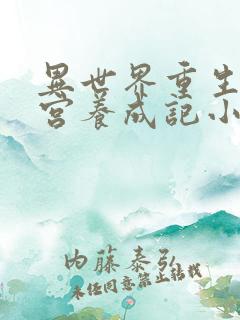 異世界重生
宮養成記小
内藤泰弘
未经同意禁止转载